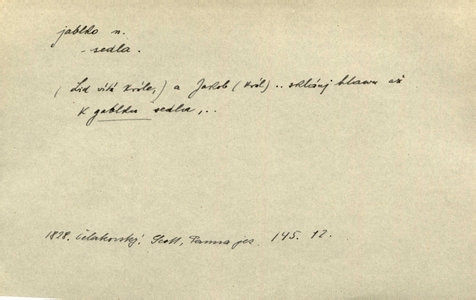 jablko n.
- sedla.
(Lid vítá krále,) a Jakob (král) .. sklánj hlawu až
k gablku sedla, ..
1828. Čelakovský, Scott, Panna jez. 145. 12.